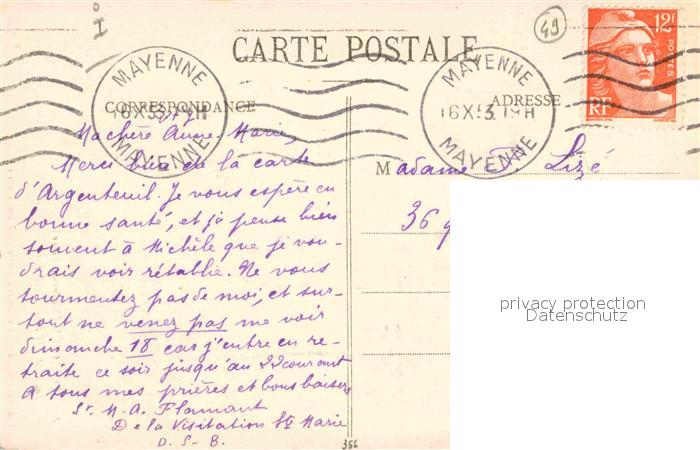 I
49
CARTE POSTALE
MAYENNE
16X53 19H
MAYENNE
MAYENNE
16X53 19H
MAYENNE
12F
POSTES
RF
CORRESPONDANCE
ADRESSE
Ma chère Anne-Marie,
Merci bien de la carte
d'Argenteuil. Je vous espère en
bonne santé, et je pense bien
souvent à Michèle que je vou-
drais voir rétablie. Ne vous
tourmentez pas de moi, et sur-
tout ne venez pas me voir
dimanche 18 car j'entre en re-
traite ce soir jusqu'au 22 courant
A tous mes prières et bons baisers
Sr. M. A. Flamant
De la Visitation Ste Marie
D. S. B.
Madame Lizé
36
356
privacy protection
Datenschutz